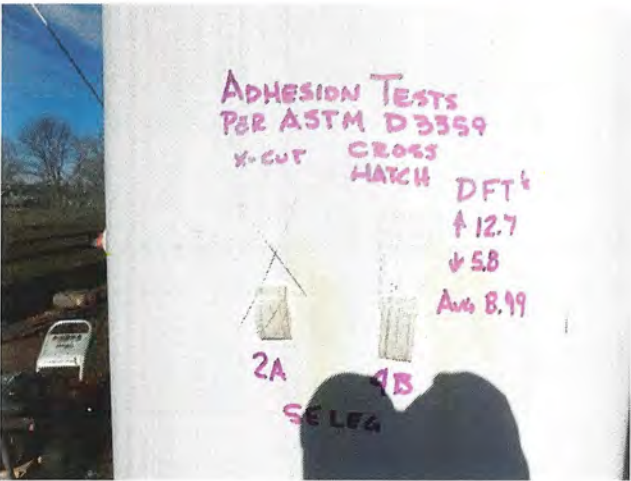 ADHESION TESTS
PER ASTM D3359
X-CUT CROSS
HATCH
DFT'
↑ 12.7
↓ 5.8
AVG 8.99
2A
4B
SE LEG